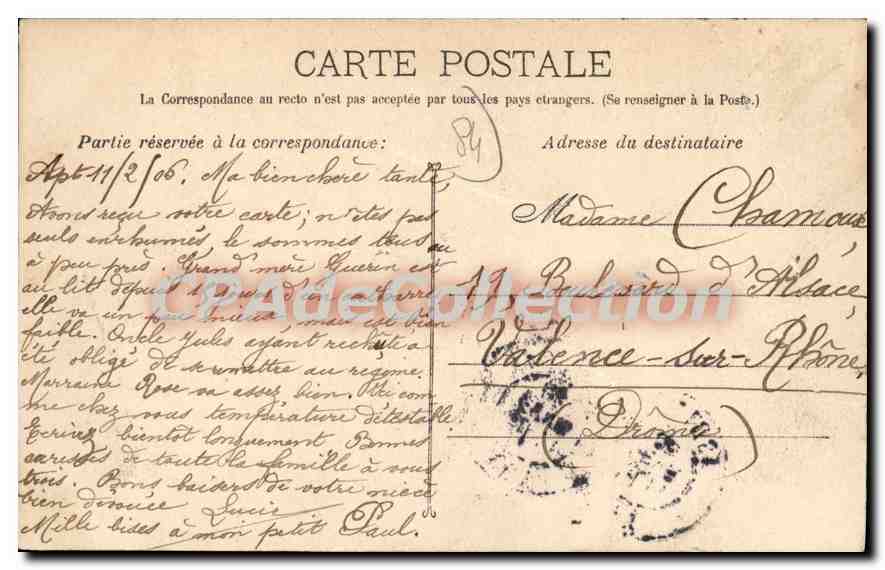 CARTE POSTALE
La Correspondance au recto n'est pas acceptée par tous les pays etrangers. (Se renseigner à la Poste.)
Partie réservée à la correspondance:
Adresse du destinataire
84
Apt 11/2/06. Ma bien chère tante,
Avons reçu votre carte; n'êtes pas
seuls enrhumés, le sommes tous ou
à peu près. Grand'mère Guérin est
au lit depuis jours d'un catharre
elle va un peu mieux, mais est bien
faible. Oncle Jules ayant rechuté a
été obligé de se remettre au régime.
Marraine Rose va assez bien. Ici com
me chez vous température détestable.
Ecrivez bientot longuement Bonnes
caresses de toute la famille à vous
trois. Bons baisers de votre nièce
bien dévouée Lucie
Mille bises à mon petit Paul.
Madame Chamoux
19, Boulevard d'Alsace,
Valence-sur-Rhône,
(Drôme)
CPAdeCollection